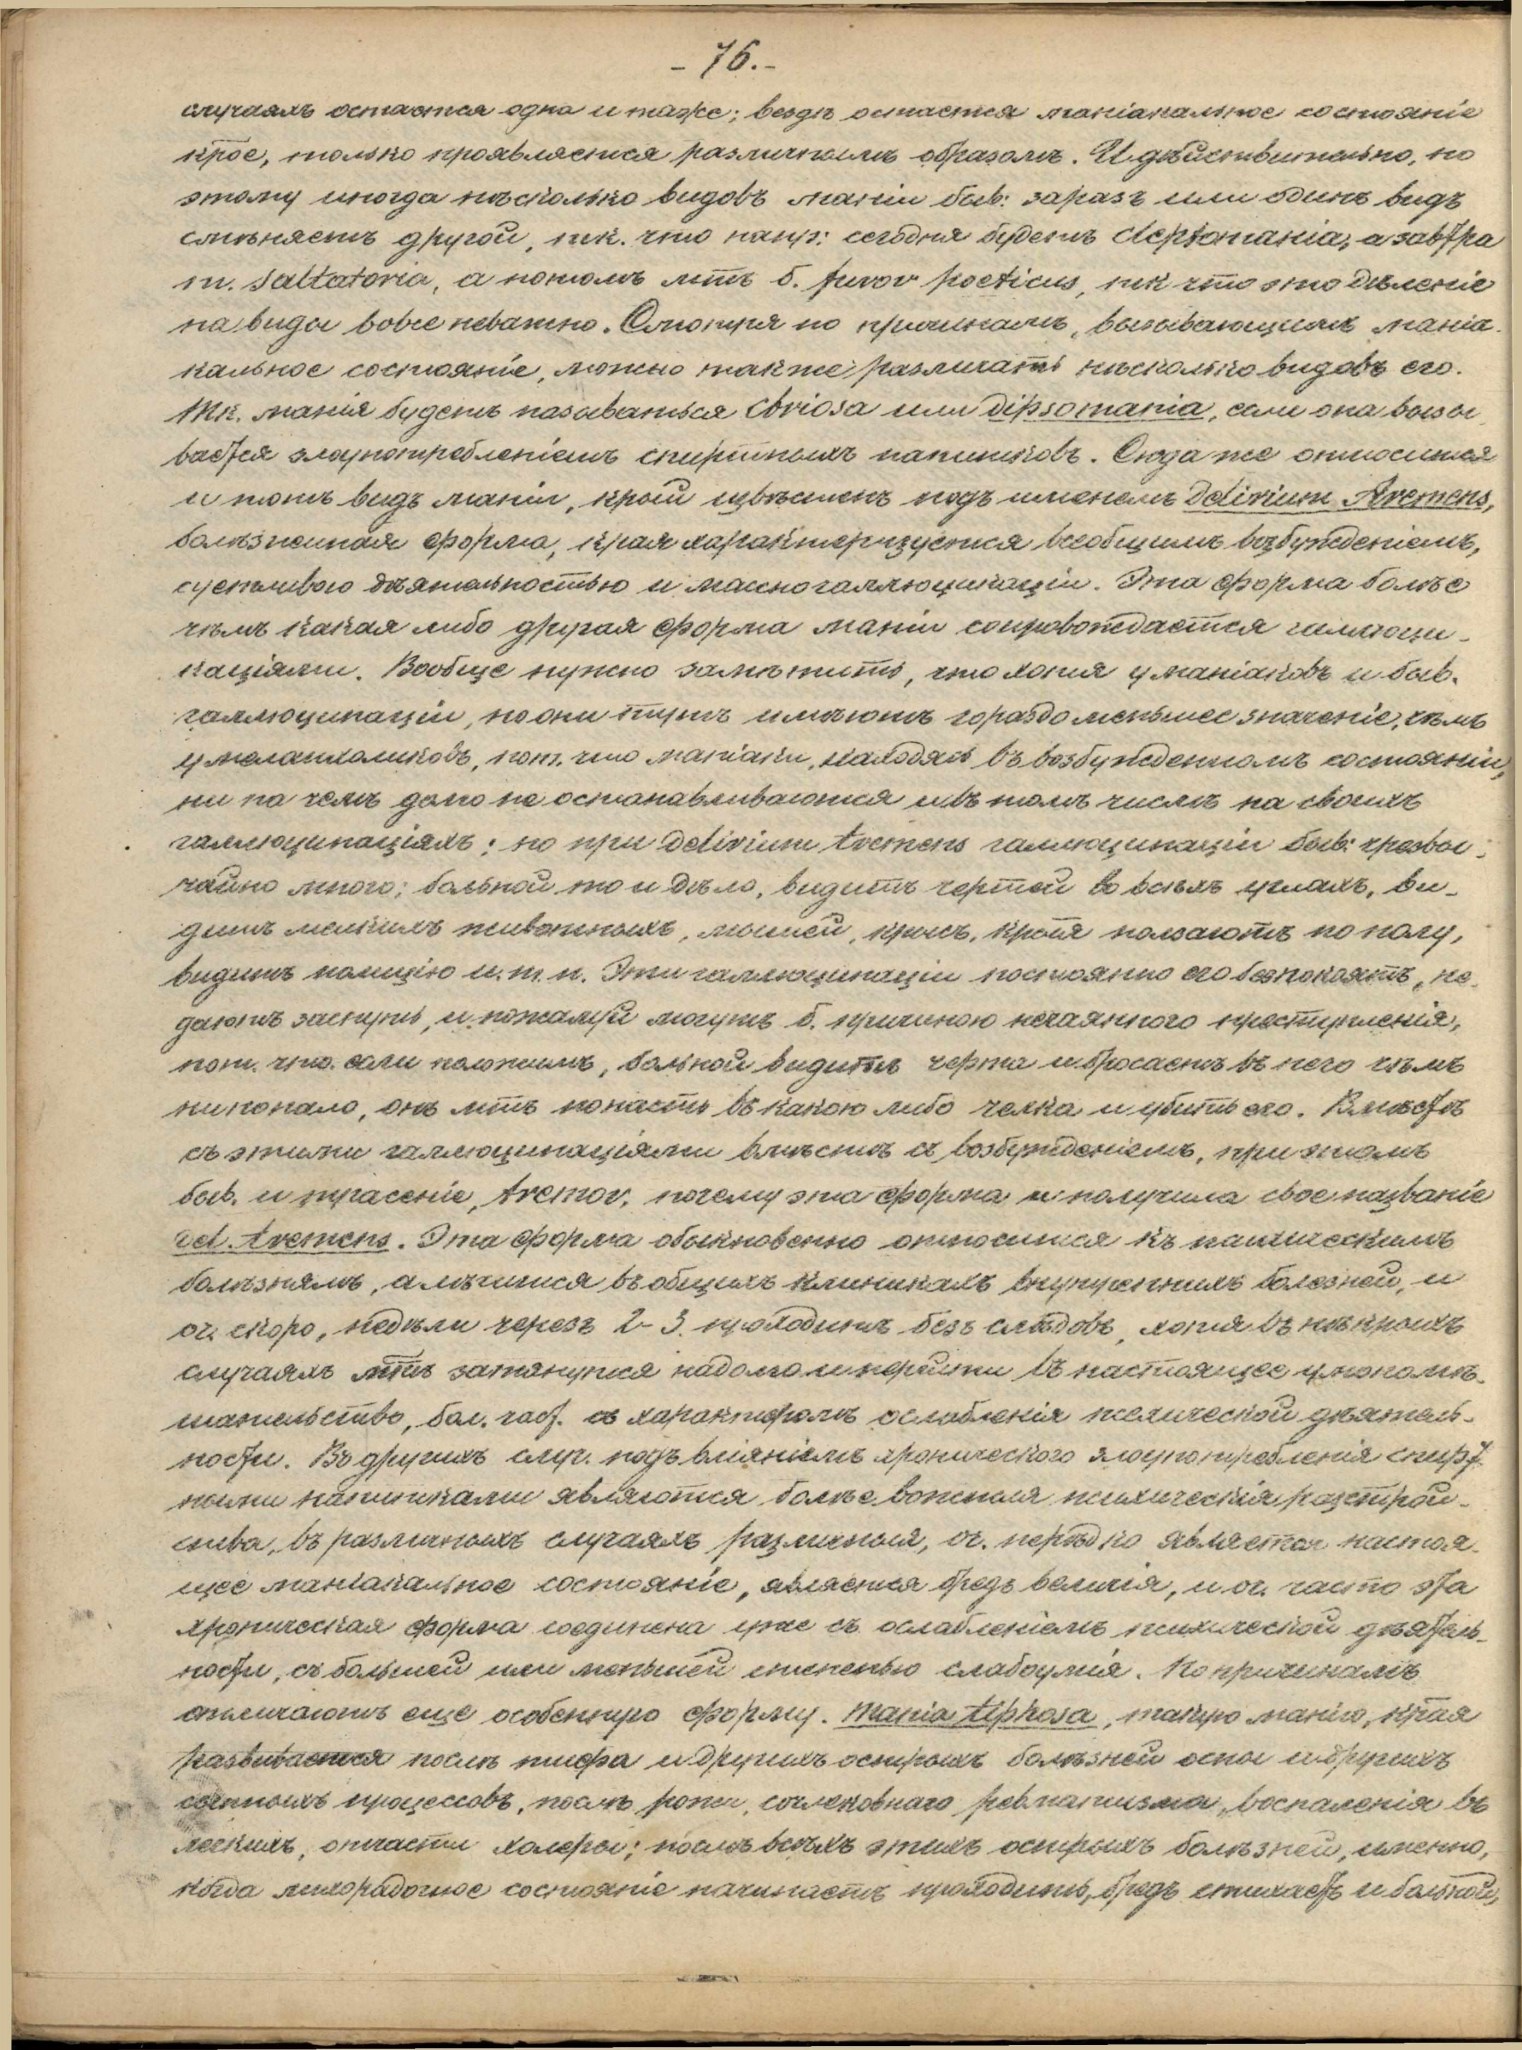 - 76. -
случаяхъ остается одна и таже; вездѣ остается маніакальное состояніе
крое, только проявляется различнымъ образомъ. И дѣйствительно, по
этому иногда нѣсколько видовъ маніи быв: заразъ или одинъ видъ
смѣняетъ другой, т.к. что напр: сегодня будетъ cleptomania, а завтра
m. saltatoria, а потомъ мтъ б. furor poeticus, тк что это дѣленіе
на виды вовсе неважно. Смотря по причинамъ, вызывающимъ маніа-
кальное состояніе, можно также различать нѣсколько видовъ его.
Тк. манія будетъ называться ebriosa или dipsomania, если она вызы-
вается злоупотребленіемъ спиртныхъ напитковъ. Сюда же относится
и тотъ видъ маніи, крый извѣстенъ подъ именемъ Delirium tremens,
болѣзненная форма, края характеризуется всеобщимъ возбужденіемъ,
суетливою дѣятельностью и массою галлюцинаціи. Эта форма болѣе
чѣмъ какая либо другая форма маніи сопровождается галлюци-
націями. Вообще нужно замѣтить, что хотя у маніаковъ и быв.
галлюцинаціи, но они тутъ имѣютъ гораздо меньшее значеніе, чѣмъ
у меланхоликовъ, пот. что маніаки, находясь въ возбужденномъ состояніи,
ни на чемъ долго не останавливаются и въ томъ числѣ на своихъ
галлюцинаціяхъ; но при Delirium tremens галлюцинаціи быв: чрезвы-
чайно много; больной то и дѣло, видитъ чертей во всѣхъ углахъ, ви-
дитъ мелкихъ животныхъ, мышей, крысъ, крыя ползаютъ по полу,
видитъ полицію и.т.п. Эти галлюцинаціи постоянно его безпокоятъ, не
даютъ заснуть, и пожалуй могутъ б. причиною нечаяннаго преступленія,
пот. что. если положимъ, больной видитъ черта и бросаетъ въ него чѣмъ
ни попало, онъ мтъ попасть въ какого либо челка и убить его. Вмѣстѣ
съ этими галлюцинаціями вмѣстѣ съ возбужденіемъ, при этомъ
быв. и трясеніе, tremor, почему эта форма и получила свое названіе
del. tremens. Эта форма обыкновенно относится къ психическимъ
болѣзнямъ, а лѣчится въ общихъ клиникахъ внутреннихъ болезней, и
оч. скоро, недѣли черезъ 2-3. проходитъ безъ слѣдовъ, хотя въ нѣкрыхъ
случаяхъ мтъ затянутся надолго и перейти въ настоящее умопомѣ-
шательство, бол. част. съ характеромъ ослабленія психической дѣятель-
ности. Въ другихъ случ. подъ вліяніемъ хроническаго злоупотребленія спирт-
ными напитками являются болѣе важныя психическія разстрой-
ства, въ различныхъ случаяхъ различныя, оч. нерѣдко является настоя-
щее маніакальное состояніе, является бредъ величія, и оч. часто эта
хроническая форма соединена уже съ ослабленіемъ психической дѣятель-
ности, съ большей или меньшей степенью слабоумія. По причинамъ
отличаютъ еще особенную форму. Mania tiphosa, такую манію, края
развивается послѣ тифа и другихъ острыхъ болѣзней оспы и другихъ
сыпныхъ процессовъ, послѣ рожи, сочленовнаго ревматизма, воспаленія въ
легкихъ, отчасти холеры; послѣ всѣхъ этихъ острыхъ болѣзней, именно,
когда лихорадочное состояніе начинаетъ проходить, бредъ стихаетъ и больной,